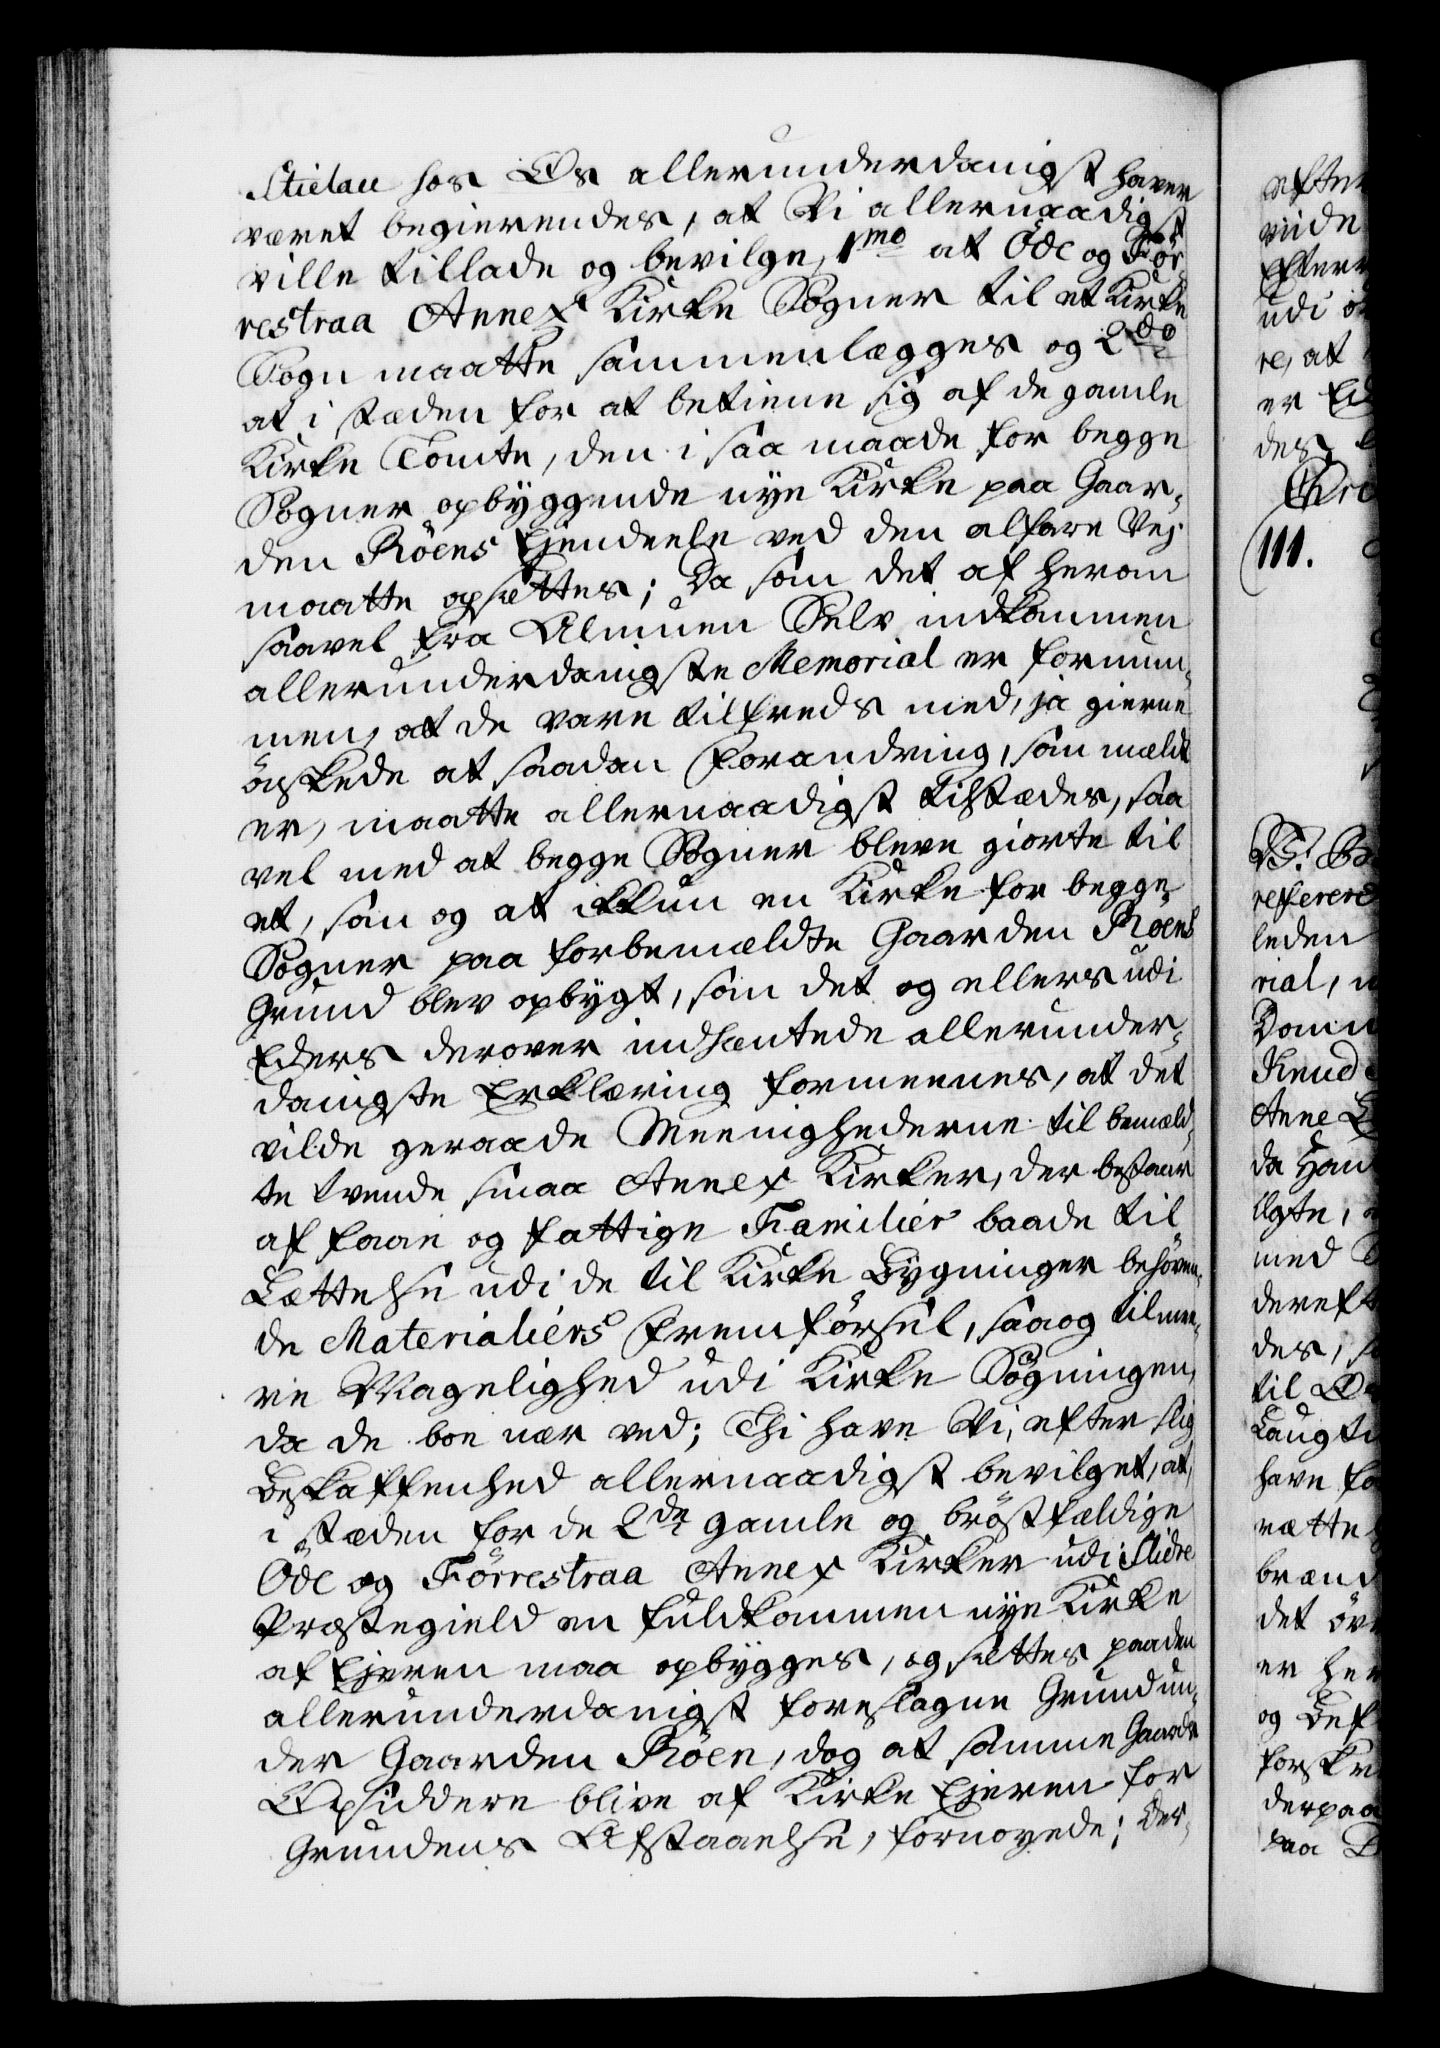 Stielau hos Os allerunderdanigst haver
været begierendes, at Vi allernaadigst
ville tillade og bevilge, 1mo at Öde og För
restraa Annex Kirke Sogner til et Kirke
Sogn maatte sammenlægges og 2do
at i stæden for at betiene sig af de gamle
Kirke Tomte, den i saa maade for begge
Sogner opbyggende nye Kirke paa Gaar-
den Röens Ejendeele ved den alfare Vej
maatte opsættes; Da som det af herom
saavel fra Almuen Selv indkommen
allerunderdanigste Memorial er fornum-
men, at de vare tilfreds med, ja gierne
önskede at saadan Forandring, som meldt
er, maatte allernaadigst tilstædes, saa
vel med at begge Sogner bleve giorte til
et, som og at ikkun en Kirke for begge
Sogner paa forbemældte Gaarden Röens
Grund blev opbygt, som det og ellers udi
Eders derover indhentede allerunder-
danigste Erklæring formeenes, at det
vilde geraade Meenighederne til bemeld-
te tvende smaa Annex Kirker, der bestaar
af faae og fattige Familier baade til
Lættelse udi de til Kirke Bygninger behöven-
de Materialiers Fremförsel, saa og til mee-
re Magelighed udi Kirke Sögningen,
da de boe nær ved; Thi have Vi, efter slig
Beskaffenhed allernaadigst bevilget, at,
i stæden for de 2de gamle og bröstfældige
Öde og Förrestraa Annex Kirker udi Slidre
Præstegield en fuldkommen nye Kirke
af Ejeren maa opbygges, og settes paa den
allerunderdanigst foreslagne Grund un-
der Gaarden Röen, dog at samme Gaards
Opsiddere blive af Kirke Ejeren for
Grundens Afstaaelse, fornoyede; Der-
efter
viide
Efterr
udi
re, at
er
des
111.
refferere
leden
rial,
Knud
Anne
da Han
med
dereft
des,
til
have
rætte
det
er her
og
derpaa